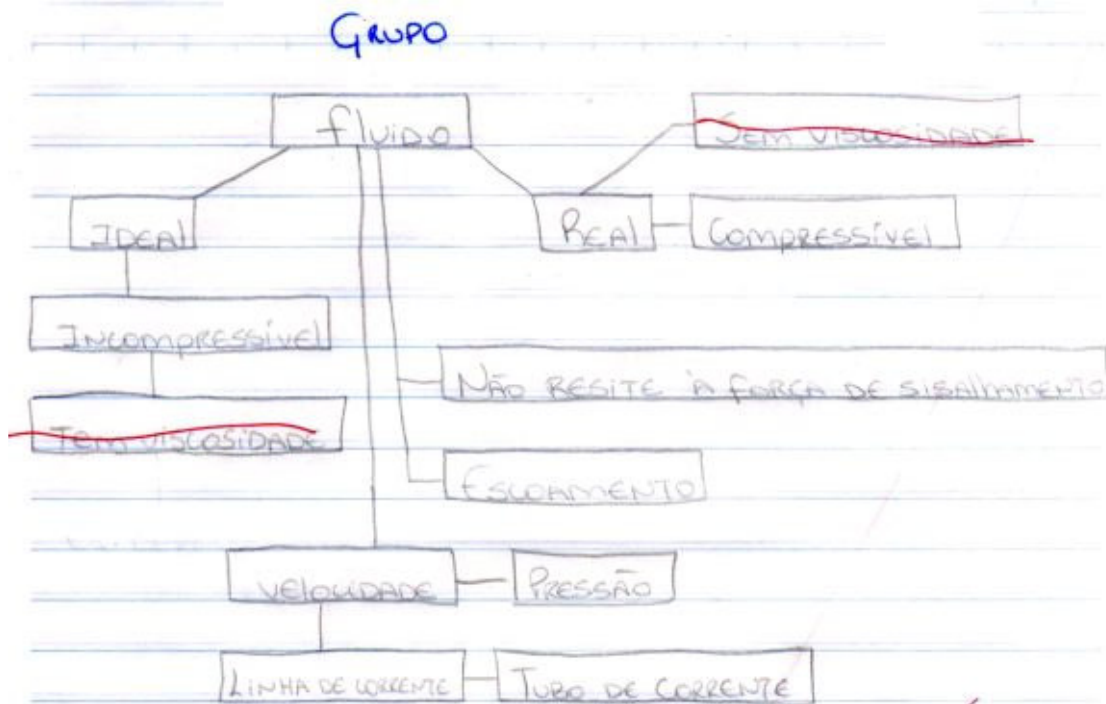 GRUPO
fluido
SEM VISCOSIDADE
IDEAl
REAl
COMPRESSÍVEl
INCOMPRESSÍVEl
NÃO RESITE À FORÇA DE SISAlhAMENTO
TEM VISCOSIDADE
ESCOAMENTO
VElOCIDADE
PRESSÃO
LINHA DE CORRENTE
TUBO DE CORRENTE